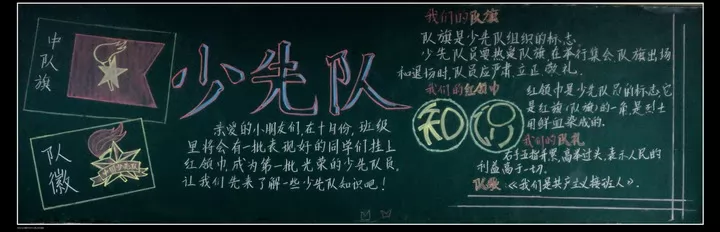 中队旗
队徽
少先队
亲爱的小朋友们,在十月份,班级
里将会有一批表现好的同学们挂上
红领巾,成为第一批光荣的少先队员,
让我们先来了解一些少先队知识吧!
我们的队旗
队旗是少先队组织的标志
少先队员要热爱队旗,在举行集会队旗出场
和退场时,队员应严肃立正敬礼.
我们的红领巾
知识
红领巾是少先队员的标志,它
是红旗(队旗)的一角,是烈士
用鲜血染成的.
我们的队礼
右手五指并紧,高举过头,表示人民的
利益高于一切.
队歌:《我们是共产主义接班人》.